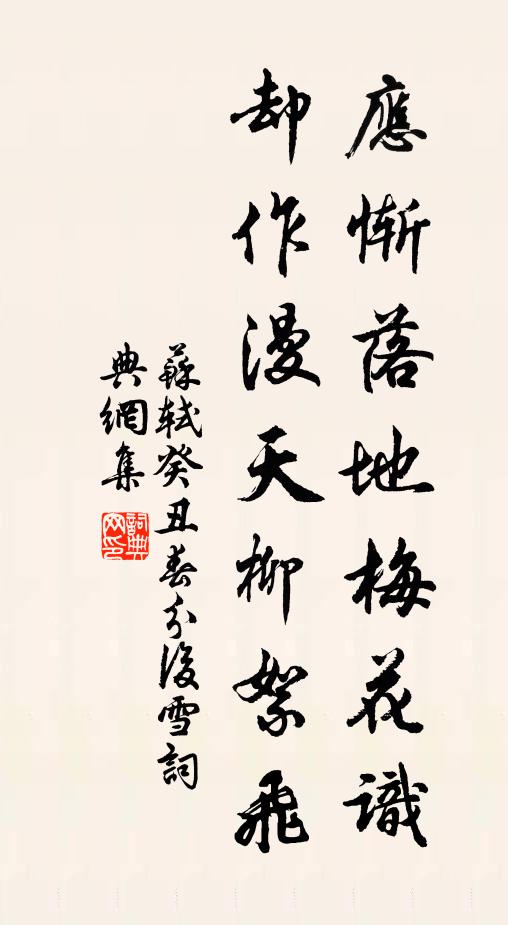 應慚落地梅花識
却作漫天柳絮飛
蘇軾癸丑春分後雪詞
典網集
詞典
网印